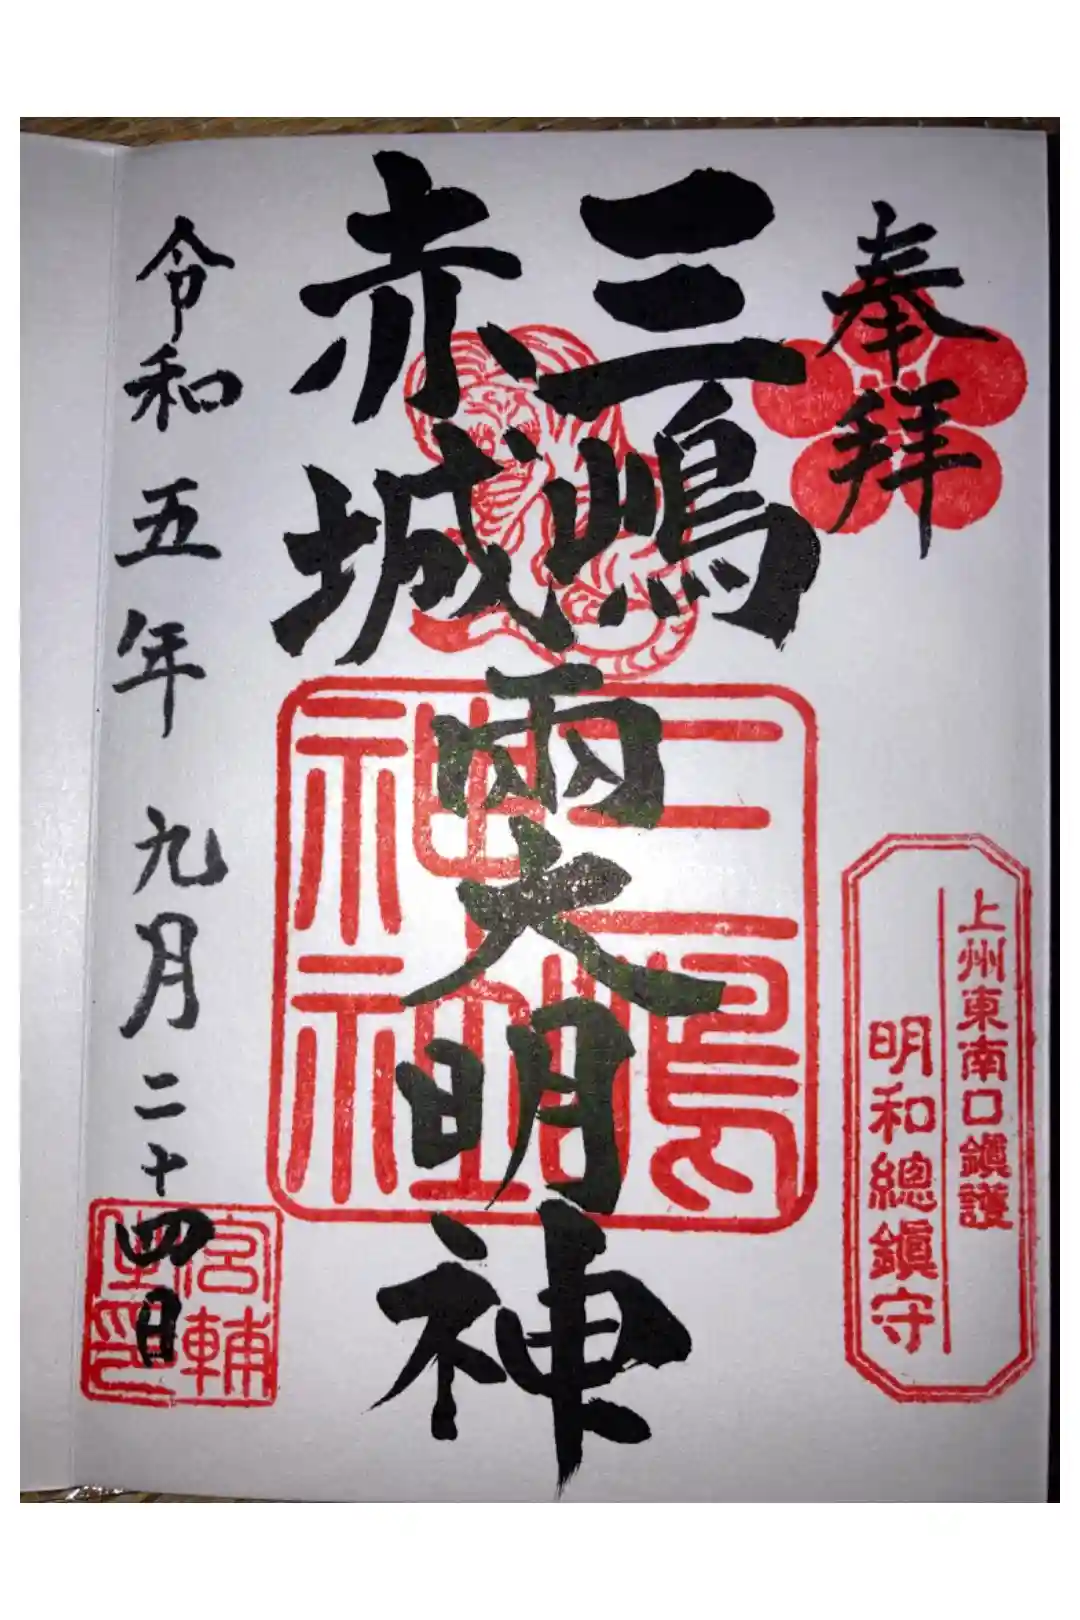 奉拝
上州東南口鎮護
明和總鎮守
三嶋
赤城
両大明神
三嶋神社
令和五年九月二十四日
宮輔